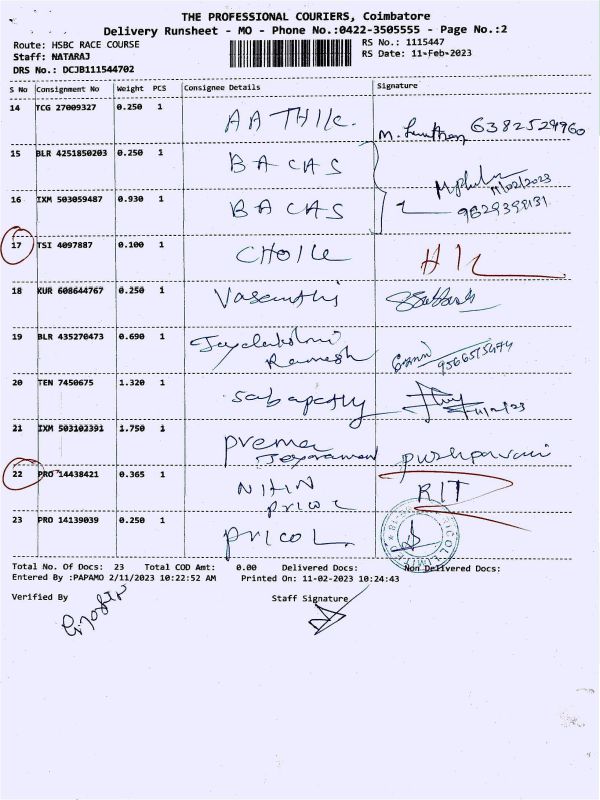 THE PROFESSIONAL COURIERS, Coimbatore
Delivery Runsheet - MO - Phone No.:0422-3505555 - Page No.:2
Route: HSBC RACE COURSE
RS No.: 1115447
Staff: NATARAJ
RS Date: 11-Feb-2023
DRS No.: DCJB111544702
S No Consignment No Weight PCS Consignee Details Signature
14 TCG 27009327 0.250 1 AATHIC. 6382529960
15 BLR 4251850203 0.250 1 BACAS
11/02/2023
16 IXM 503059487 0.930 1 BACAS
17 TSI 4097887 0.100 1 CHOICE
18 KUR 608644767 0.250 1 Vasanthi
19 BLR 435270473 0.690 1 Jayalakshmi
Ramesh
20 TEN 7450675 1.320 1 Sabapathy
21 IXM 503102391 1.750 1 Prema
Jayaraman pushpavani
22 PRO 14438421 0.365 1 NITIN RIT
Pricol
23 PRO 14139039 0.250 1 PRICOL
Total No. Of Docs: 23 Total COD Amt: 0.00 Delivered Docs: Non Delivered Docs:
Entered By :PAPAMO 2/11/2023 10:22:52 AM Printed On: 11-02-2023 10:24:43
Verified By Staff Signature